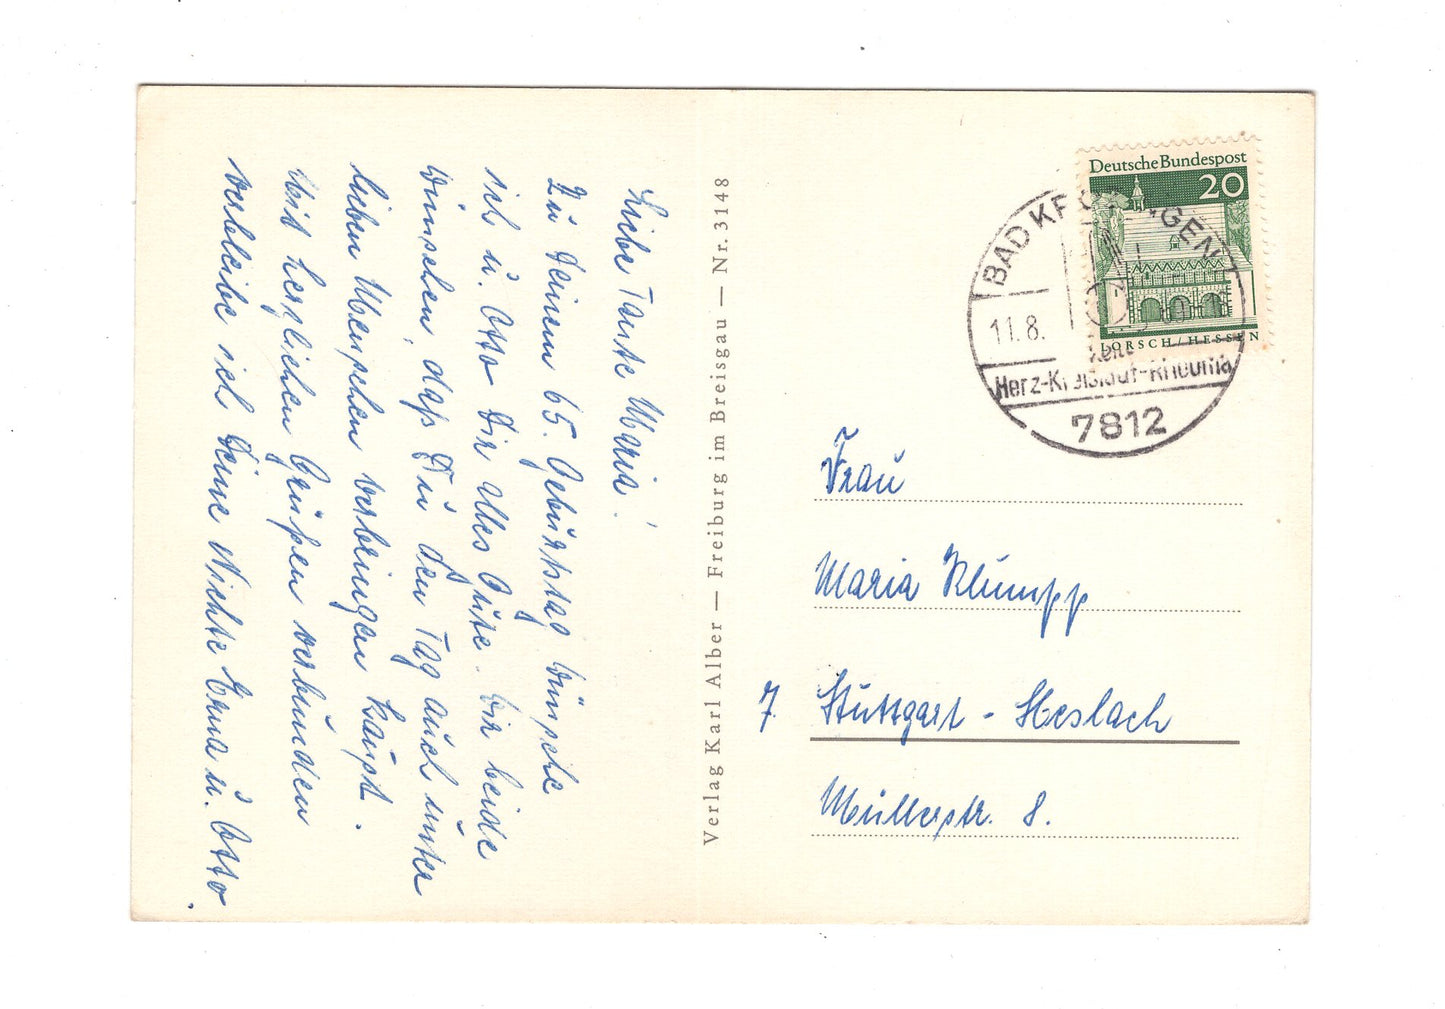 Liebe Tante Maria!
Zu Deinem 65. Geburtstag wünsche
ich u. Otto Dir alles Gute. Wir beide
wünschen, daß Du den Tag auch unter
lieben Menschen verbringen kannst.
Mit herzlichen Grüßen verbunden
verbleibe ich Deine Nichte Erna u. Otto.
Verlag Karl Alber — Freiburg im Breisgau — Nr. 3148
Deutsche Bundespost
20
LORSCH/HESSEN
BAD KROZINGEN
11.8.
Herz-Kreislauf-Rheuma
7812
Frau
Maria Klumpp
7 Stuttgart - Heslach
Müllerstr. 8.